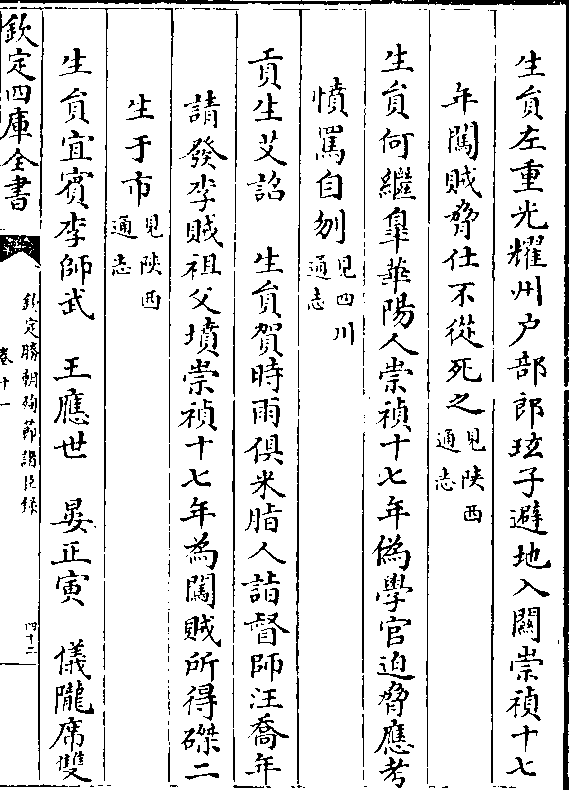 生員左重光耀州户部郎玹子避地入關崇禎十七
年闖賊脅仕不從死之見陜西通志
生員何繼臯華陽人崇禎十七年偽學官迫脅應考
憤罵自刎見四川通志
貢生艾詔　生員賀時雨俱米脂人詣督師汪喬年
請發李賊祖父墳崇禎十七年為闖賊所得磔二
生于市見陜西通志
生員宜賓李師武　王應世　晏正寅　儀隴席雙
欽定四庫全書
欽定勝朝殉節諸臣錄
卷十一
四十二